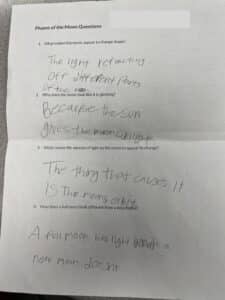 Phases of the Moon Questions
1. Why does the moon appear to change shape?
The light refracting
off different parts
of the
2. Why does the moon look like it is glowing?
Because the sun
gives the moon sunlight
3. What causes the amount of light on the moon to appear to change?
The thing that causes it
is the moons orbit
4. How does a full moon look different from a new moon?
A full moon has light a
new moon doesnt